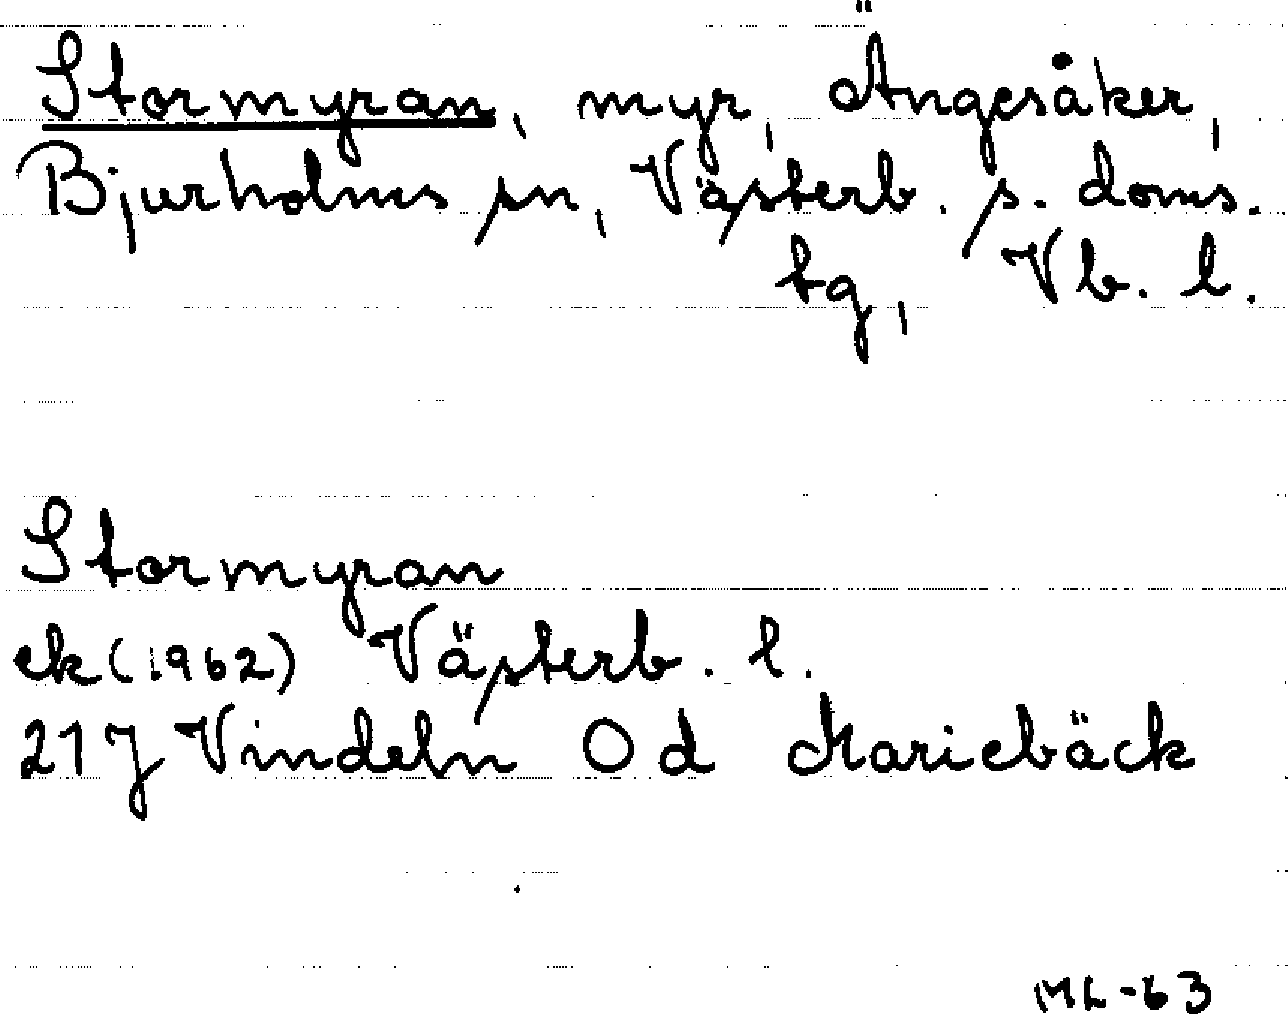 Stormyran, myr, Ängesåker,
Bjurholms sn, Västerb. s. doms.
tg, Vb. l.
Stormyran
ek (1962) Västerb. l.
21J Vindeln 0d Mariebäck
ML-63